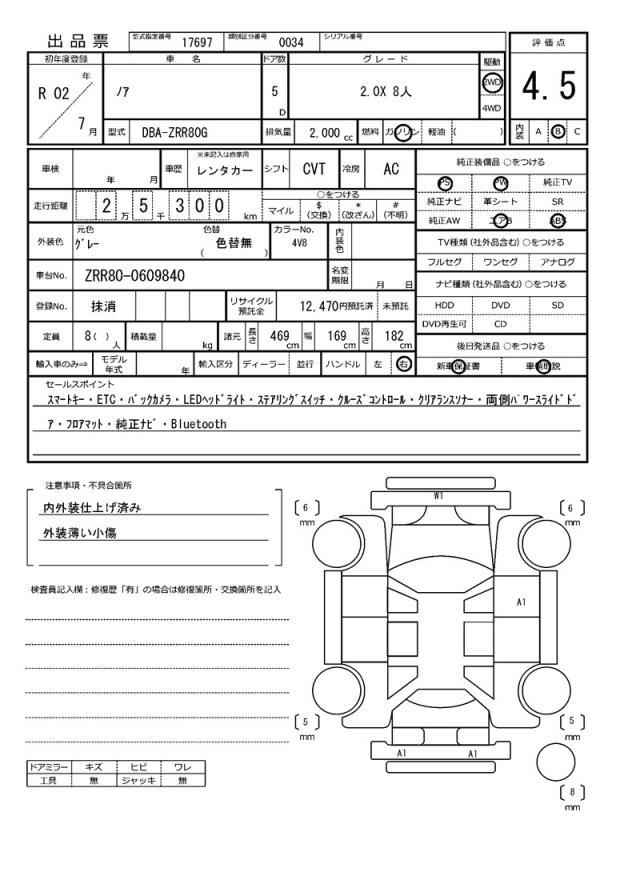 出品票
型式指定番号 17697 類別区分番号 0034 シリアル番号
評価点
4.5
内装 A B C
初年度登録 車名 ドア数 グレード 駆動
R 02 年 7 月
ノア 5 D 2.0X 8人 2WD
4WD
型式 DBA-ZRR80G 排気量 2,000 cc 燃料 ガソリン 軽油 ( )
車検 年 月 車歴 ※未記入は自家用 レンタカー シフト CVT 冷房 AC
走行距離 2 万 5 千 3 0 0 km
○をつける
マイル $ (交換) * (改ざん) # (不明)
外装色 元色 グレー 色替 色替無 ( ) カラーNo. 4V8 内装色
車台No. ZRR80-0609840 名変期限 月 日
登録No. 抹消 リサイクル預託金 12,470円預託済 未預託
定員 8( ) 人 積載量 kg 諸元 長さ 469 cm 幅 169 cm 高さ 182 cm
輸入車のみ⇒ モデル年式 年 輸入区分 ディーラー 並行 ハンドル 左 右
純正装備品 ○をつける
PS PW 純正TV
純正ナビ 革シート SR
純正AW エアB ABS
TV種類(社外品含む) ○をつける
フルセグ ワンセグ アナログ
ナビ種類(社外品含む) ○をつける
HDD DVD SD
DVD再生可 CD
後日発送品 ○をつける
新車保証書 車輌取説
セールスポイント
スマートキー・ETC・バックカメラ・LEDヘッドライト・ステアリングスイッチ・クルーズコントロール・クリアランスソナー・両側パワースライドド
ア・フロアマット・純正ナビ・Bluetooth
注意事項・不具合箇所
内外装仕上げ済み
外装薄い小傷
検査員記入欄:修復歴「有」の場合は修復箇所・交換箇所を記入
ドアミラー キズ ヒビ ワレ
工具 無 ジャッキ 無
W1
[ 6 ] mm
[ 6 ] mm
A1
[ 5 ] mm
[ 5 ] mm
A1 A1
[ 8 ] mm